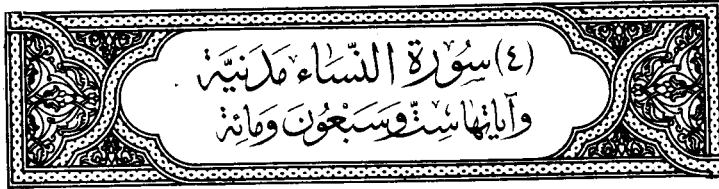 (٤) سُورَة النِّسَاء مَدَنِيَّة
وَآيَاتهَا سِتٌّ وَسَبْعُونَ وَمَائَة